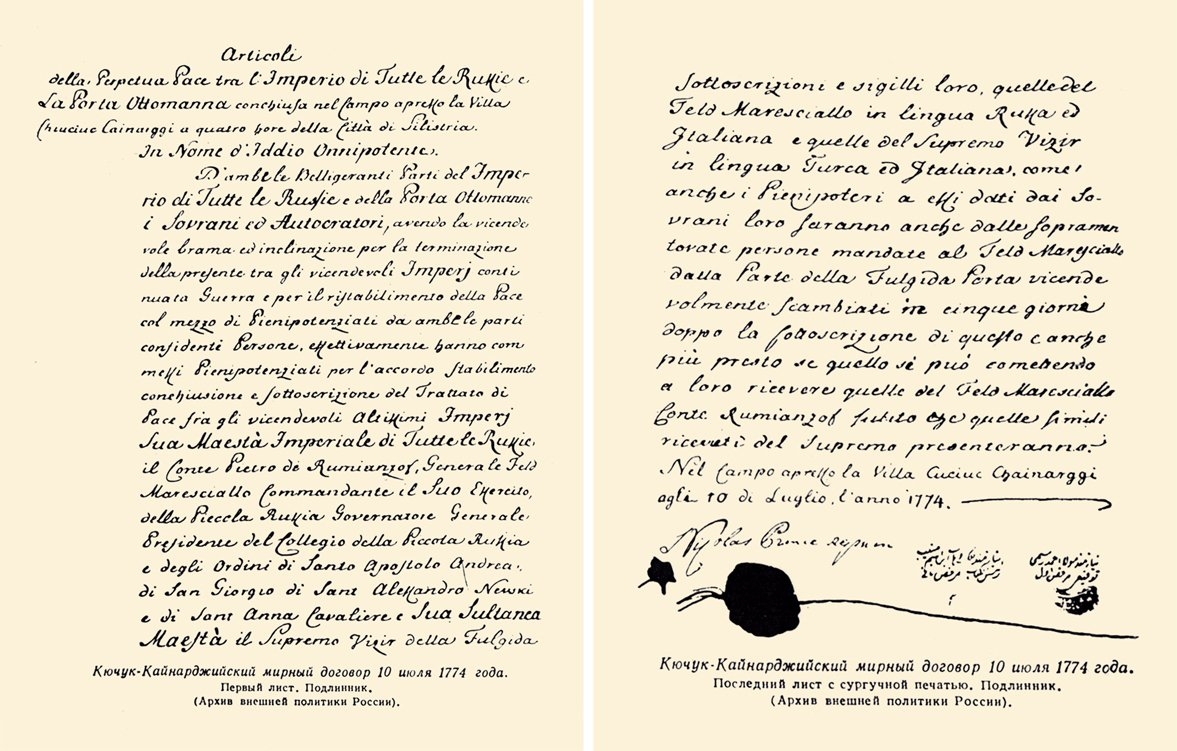 Articoli
della Perpetua Pace tra l'Imperio di Tutte le Russie e
La Porta Ottomanna conchiusa nel Campo apresso la Villa
Chiuciuc Cainarggi a quatro hore della Città di Silistria.
In Nome d'Iddio Onnipotente.
D'ambe le Belligeranti Parti del Impe-
rio di Tutte le Russie e della Porta Ottomanna
i Sovrani ed Autocratori, avendo la vicende
vole brama ed inclinazione per la terminazione
della presente tra gli vicendevoli Imperj conti
nuata Guerra e per il ristabilimento della Pace
col mezzo di Pienipotenziati da ambe le parti
confidenti Persone, effettivamente hanno com
messi Pienipotenziati per l'accordo stabilimento
conchiusione e sottoscrizione del Trattato di
Pace fra gli vicendevoli Altissimi Imperj
Sua Maestà Imperiale di Tutte le Russie,
il Conte Pietro de Rumianzof, Generale Feld
Maresciallo Commandante il Suo Essercito,
della Piccola Russia Governatore Generale
Presidente del Collegio della Piccola Russia
e degli Ordini di Santo Apostolo Andrea,
di San Giorgio di Sant Alessandro Newski
e di Sant Anna Cavaliere e Sua Sultanea
Maestà il Supremo Vizir della Fulgida
Кючук-Кайнарджийский мирный договор 10 июля 1774 года.
Первый лист. Подлинник.
(Архив внешней политики России).
sottoscrizioni e sigilli loro, quelle del
Feld Maresciallo in lingua Russa ed
Italiana e quelle del Supremo Vizir
in lingua Turca ed Italiana, come
anche i Pienipoteri a essi dati dai So-
vrani loro saranno anche dalle sopramen
tovate persone mandate al Feld Maresciallo
dalla Parte della Fulgida Porta vicende
volmente scambiati in cinque giorni
doppo la sottoscrizione di questo e anche
più presto se quello si può comettendo
a loro ricevere quelle del Feld Maresciallo
Conte Rumianzof subito che quelle simili
ricevuti del Supremo presenteranno.
Nel Campo apresso la Villa Cuciuc Chainarggi
agli 10 di Luglio, l'anno 1774.
Nicolas Prince
Кючук-Кайнарджийский мирный договор 10 июля 1774 года.
Последний лист с сургучной печатью. Подлинник.
(Архив внешней политики России).